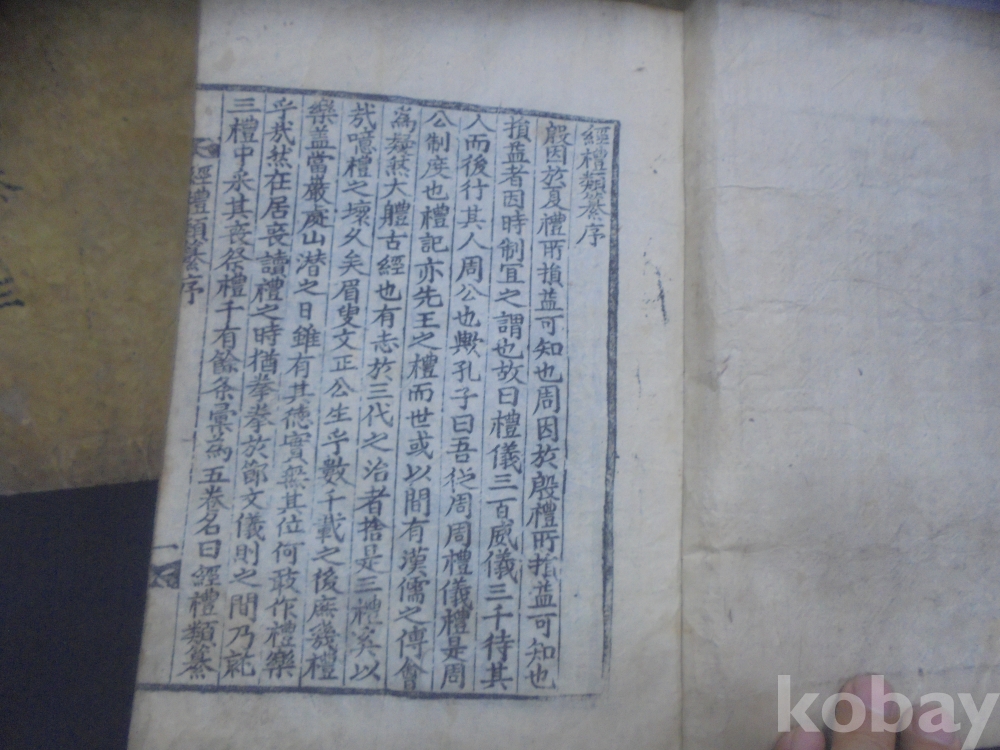 經禮類纂序
殷因於夏禮所損益可知也周因於殷禮所損益可知也
損益者因時制宜之謂也故曰禮儀三百威儀三千待其
人而後行其人周公也歟孔子曰吾從周周禮儀禮是周
公制度也禮記亦先王之禮而世或以間有漢儒之傅會
為疑然大軆古經也有志於三代之治者捨是三禮奚以
㢤噫禮之壞久矣眉叟文正公生乎數千載之後庶幾禮
樂盖當嚴廢山潜之日雖有其德實無其位何敢作禮樂
乎㢤然在居喪讀禮之時猶拳拳於節文儀則之間乃就
三禮中采其喪祭禮千有餘条彙為五卷名曰經禮類纂
經禮類纂序
一
kobay